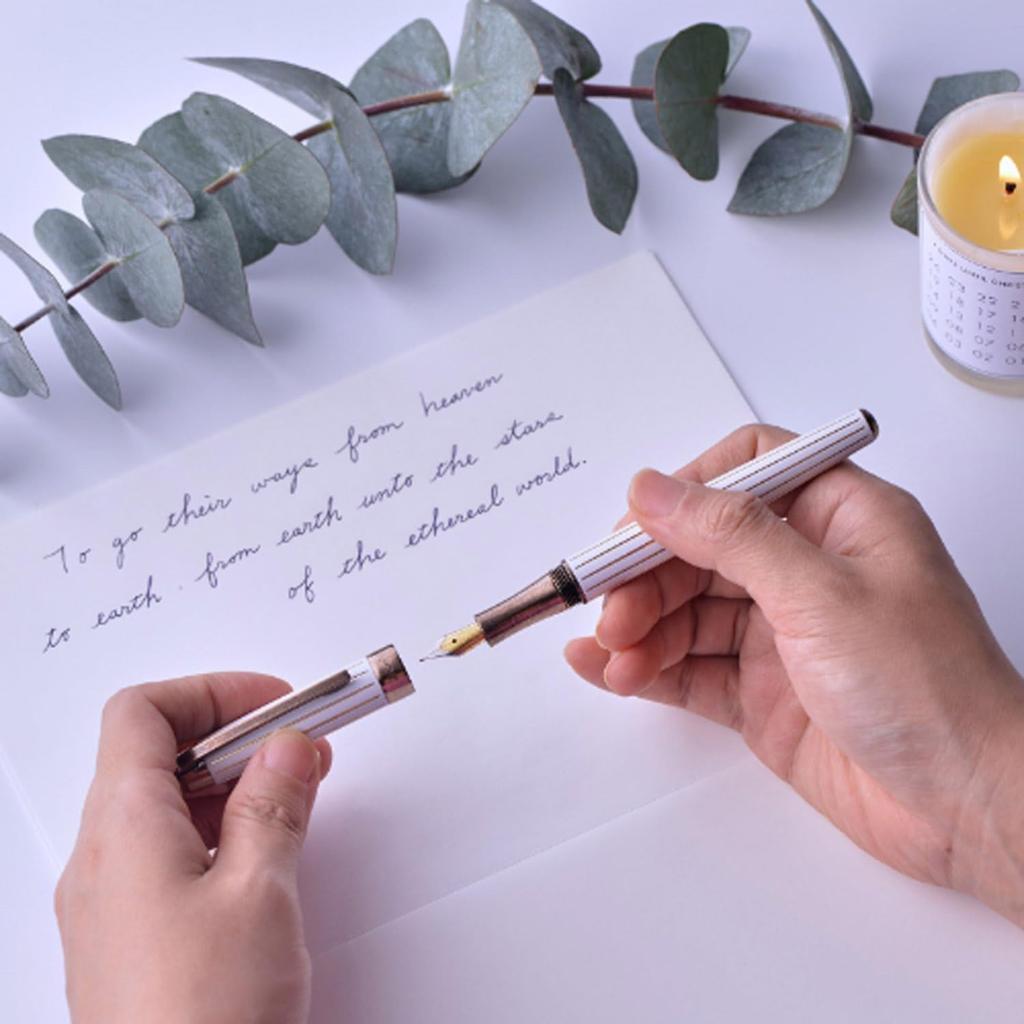 To go their ways from heaven
to earth . from earth unto the stars
of the ethereal world.
23 22
18 17
13 12
08 07
03 02